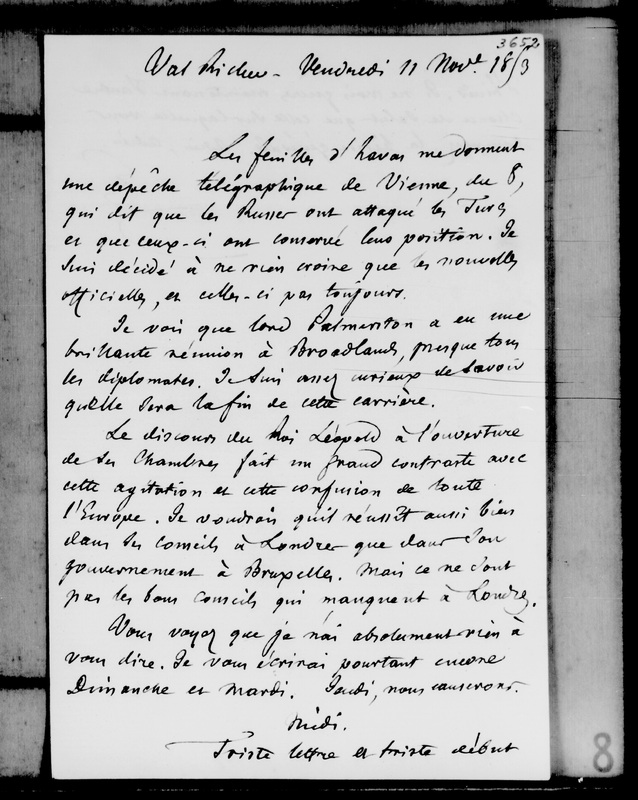 3652
Val Richer - Vendredi 11 Nov. 1853
Les feuilles d'havas me donnent
une dépêche télégraphique de Vienne, du 8,
qui dit que les Russes ont attaqué les Turcs
et que ceux-ci ont conservé leur position. Je
suis décidé à ne rien croire que les nouvelles
officielles, et celles-ci pas toujours.
Je vois que lord Palmerston a eu une
brillante réunion à Broadlands, presque tous
les diplomates. Je suis assez curieux de savoir
quelle sera la fin de cette carrière.
Le discours du Roi Léopold à l'ouverture
de ses Chambres fait un grand contraste avec
cette agitation et cette confusion de toute
l'Europe. Je voudrais qu'il réussît aussi bien
dans ses conseils à Londres que dans son
gouvernement à Bruxelles. Mais ce ne sont
pas les bons conseils qui manquent à Londres.
Vous voyez que je n'ai absolument rien à
vous dire. Je vous écrirai pourtant encore
Dimanche et Mardi. Jeudi, nous causerons.
Midi.
Triste lettre et triste début
8